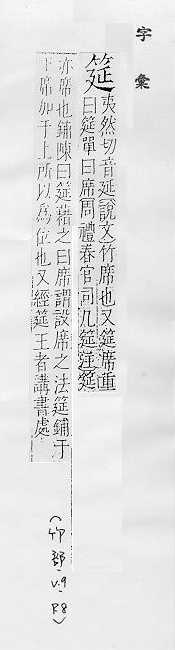 字彙
筵 夷然切音延說文竹席也又筵席重
曰筵單曰席周禮春官司几筵註筵
亦席也鋪陳曰筵藉之曰席謂設席之法筵鋪于
下席加于上所以為位也又經筵王者講書處
(竹部-V.9-P.8)